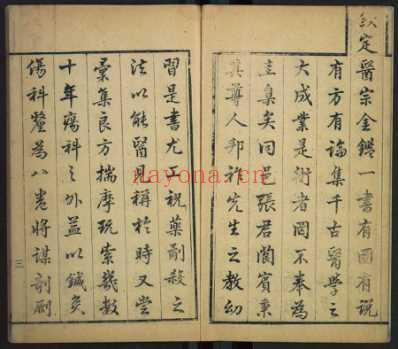 欽定醫宗金鑑一書有圖有説
有方有論集千古醫學之
大成業是術者罔不奉為
圭臬矣同邑張君闇賓秉
其尊人邦祚先生之教幼
習是書尤工祝藥劀殺之
法以能醫見稱於時又嘗
彙集良方揣摩玩索幾數
十年瘍科之外益以鍼灸
傷科釐為八卷將謀剞劂
三
nayona.cn